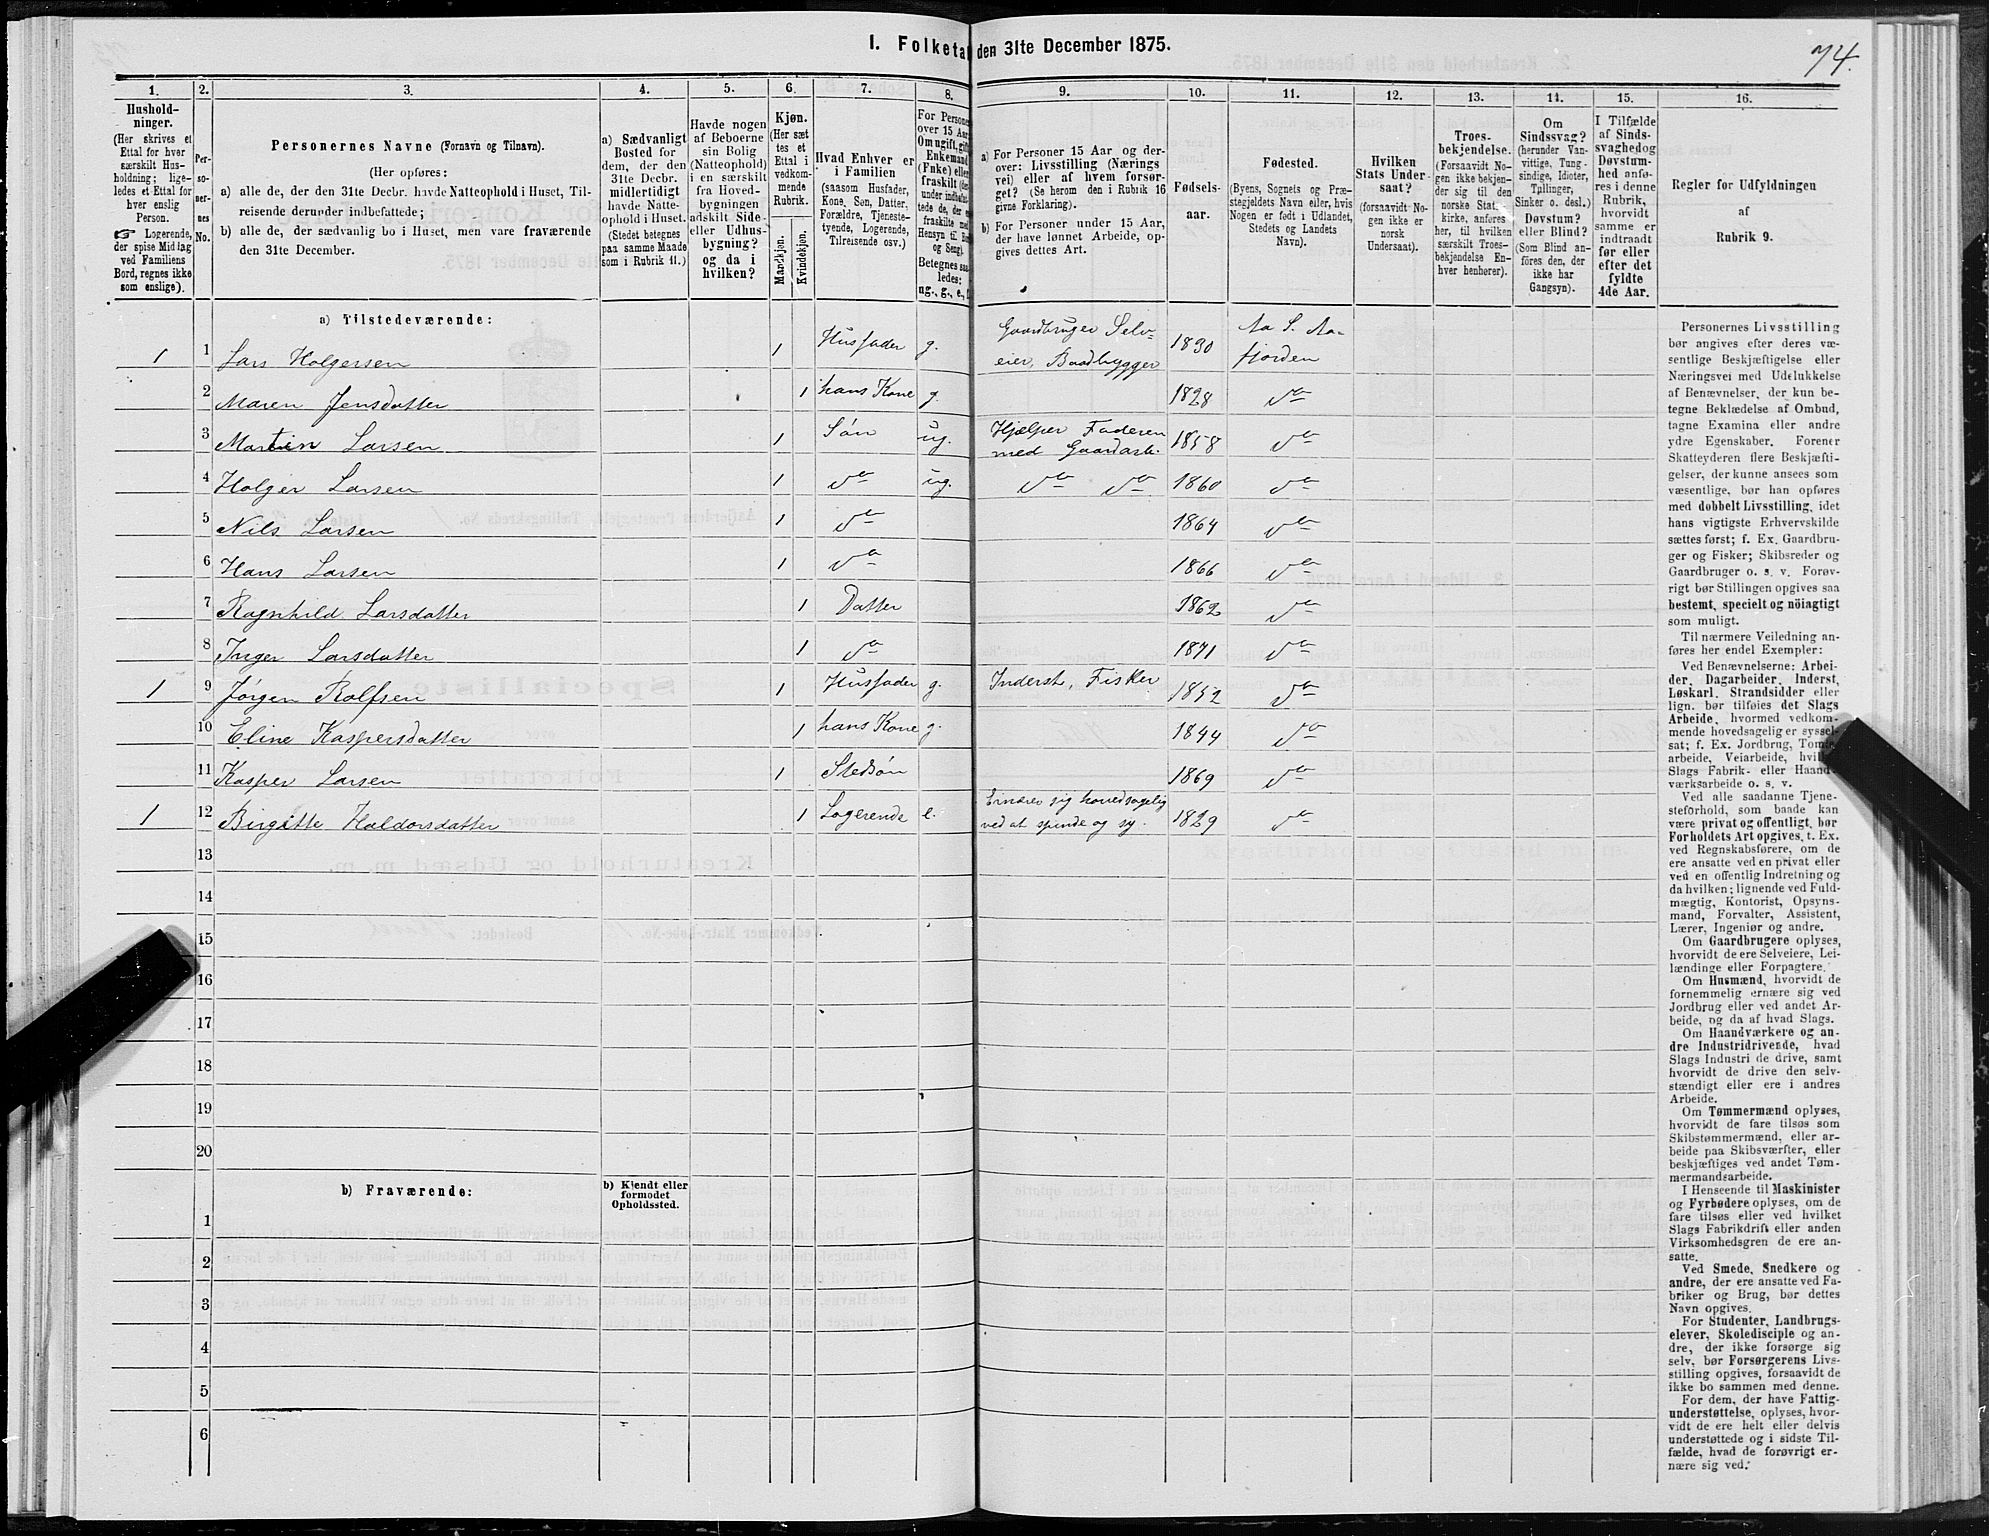 I. Folketal den 31te December 1875.
74.
1.
Hushold-
ninger.
(Her skrives et
Ettal for hver
særskilt Hus-
holdning; lige-
ledes et Ettal for
hver enslig
Person.
☞ Logerende,
der spise Middag
ved Familiens
Bord, regnes ikke
som enslige).
2.
Per-
so-
ner-
nes
No.
3.
Personernes Navne (Fornavn og Tilnavn).
(Her opføres:
a) alle de, der den 31te Decbr. havde Natteophold i Huset, Til-
reisende derunder indbefattede;
b) alle de, der sædvanlig bo i Huset, men vare fraværende
den 31te December.
4.
a) Sædvanligt
Bosted for
dem, der den
31te Decbr.
midlertidigt
havde Natte-
ophold i Huset.
(Stedet betegnes
paa samme Maade
som i Rubrik 11.)
5.
Havde nogen
af Beboerne
sin Bolig
(Natteophold)
i en særskilt
fra Hoved-
bygningen
adskilt Side-
eller Udhus-
bygning?
og da i
hvilken?
6.
Kjøn.
(Her sæt
tes et
Ettal i
vedkom-
mende
Rubrik.
Mandkjøn.
Kvindekjøn.
7.
Hvad Enhver er
i Familien
(saasom Husfader,
Kone, Søn, Datter,
Forældre, Tjeneste-
tyende, Logerende,
Tilreisende osv.)
8.
For Personer
over 15 Aar
Om ugift, gift
Enkemand
(Enke) eller
fraskilt
og Seng).
Betegnes saa-
ledes:
ug., g., e.,
9.
a) For Personer 15 Aar og der-
over: Livsstilling (Nærings
vei) eller af hvem forsør-
get? (Se herom den i Rubrik 16
givne Forklaring).
b) For Personer under 15 Aar,
der have lønnet Arbeide, op-
gives dettes Art.
10.
Fødsels-
aar.
11.
Fødested.
(Byens, Sognets og Præ-
stegjeldets Navn eller, hvis
Nogen er født i Udlandet,
Stedets og Landets
Navn).
12.
Hvilken
Stats Under-
saat?
(forsaavidt No-
gen ikke er
norsk
Undersaat).
13.
Troes-
bekjendelse.
(Forsaavidt No-
gen ikke bekjen-
der sig til den
norske Stats-
kirke, anføres
her, til hvilken
særskilt Troes-
bekjendelse En-
hver henhører).
14.
Om
Sindssvag?
(herunder Van-
vittige, Tung-
sindige, Idioter,
Tullinger,
Sinker o. desl.)
Døvstum?
eller Blind?
(Som Blind an-
føres den, der
ikke har
Gangsyn).
15.
I Tilfælde
af Sinds-
svaghed og
Døvstum-
hed anfø-
res i denne
Rubrik,
hvorvidt
samme er
indtraadt
før eller
efter det
fyldte
4de Aar.
16.
Regler for Udfyldningen
af
Rubrik 9.
a) Tilstedeværende:
1 1 Lars Holgersen 1 Husfader g. Gaardbruger Selv- eier, Baadbygger 1830 Aa S. Aa- fjorden
2 Maren Jensdatter 1 hans Kone g. 1828 do
3 Martin Larsen 1 Søn ug. Hjælper Faderen med Gaardarb. 1858 do
4 Holger Larsen 1 do ug. do do 1860 do
5 Nils Larsen 1 do 1864 do
6 Hans Larsen 1 do 1866 do
7 Ragnhild Larsdatter 1 Datter 1862 do
8 Inger Larsdatter 1 do 1871 do
1 9 Jørgen Rolfsen 1 Husfader g. Inderst, Fisker 1852 do
10 Eline Kaspersdatter 1 hans Kone g. 1844 do
11 Kasper Larsen 1 Stedsøn 1869 do
1 12 Birgitte Haldorsdatter 1 Logerende e. Ernærer sig hovedsagelig ved at spinde og sy. 1829 do
13
14
15
16
17
18
19
20
b) Fraværende:
b) Kjendt eller
formodet
Opholdssted.
1
2
3
4
5
6
Personernes Livsstilling
bør angives efter deres væ-
sentlige Beskjæftigelse eller
Næringsvei med Udelukkelse
af Benævnelser, der kun be-
tegne Beklædelse af Ombud,
tagne Examina eller andre
ydre Egenskaber. Forener
Skatteyderen flere Beskjæfti-
gelser, der kunne ansees som
væsentlige, bør han opføres
med dobbelt Livsstilling, idet
hans vigtigste Erhvervskilde
sættes først; f. Ex. Gaardbru-
ger og Fisker; Skibsreder og
Gaardbruger o. s. v. Forøv-
rigt bør Stillingen opgives saa
bestemt, specielt og nöiagtigt
som muligt.
Til nærmere Veiledning an-
føres her endel Exempler:
Ved Benævnelserne: Arbei-
der, Dagarbeider, Inderst,
Løskarl, Strandsidder eller
lign. bør tilføies det Slags
Arbeide, hvormed vedkom-
mende hovedsagelig er syssel-
sat; f. Ex. Jordbrug, Tomte-
arbeide, Veiarbeide, hvilket
Slags Fabrik- eller Haand-
værksarbeide o. s. v.
Ved alle saadanne Tjene-
steforhold, som baade kan
være privat og offentligt, bør
Forholdets Art opgives, t. Ex.
ved Regnskabsførere, om de
ere ansatte ved en privat eller
ved en offentlig Indretning og
da hvilken; lignende ved Fuld-
mægtig, Kontorist, Opsyns-
mand, Forvalter, Assistent,
Lærer, Ingeniør og andre.
Om Gaardbrugere oplyses,
hvorvidt de ere Selveiere, Lei-
lændinge eller Forpagtere.
Om Husmænd, hvorvidt de
fornemmelig ernære sig ved
Jordbrug eller ved andet Ar-
beide, og da af hvad Slags.
Om Haandværkere og an-
dre Industridrivende, hvad
Slags Industri de drive, samt
hvorvidt de drive den selv-
stændigt eller ere i andres
Arbeide.
Om Tømmermænd oplyses,
hvorvidt de fare tilsøs som
Skibstømmermænd, eller ar-
beide paa Skibsværfter, eller
beskjæftiges ved andet Tøm-
mermandsarbeide.
I Henseende til Maskinister
og Fyrbødere oplyses, om de
fare tilsøs eller ved hvilket
Slags Fabrikdrift eller anden
Virksomhedsgren de ere an-
satte.
Ved Smede, Snedkere og
andre, der ere ansatte ved Fa-
briker og Brug, bør dettes
Navn opgives.
For Studenter, Landbrugs-
elever, Skoledisciple og an-
dre, der ikke forsørge sig
selv, bør Forsørgerens Livs-
stilling opgives, forsaavidt de
ikke bo sammen med denne.
For dem, der have Fattig-
understøttelse, oplyses, hvor-
vidt de ere helt eller delvis
understøttede og i sidste Til-
fælde, hvad de forøvrigt er-
nære sig ved.